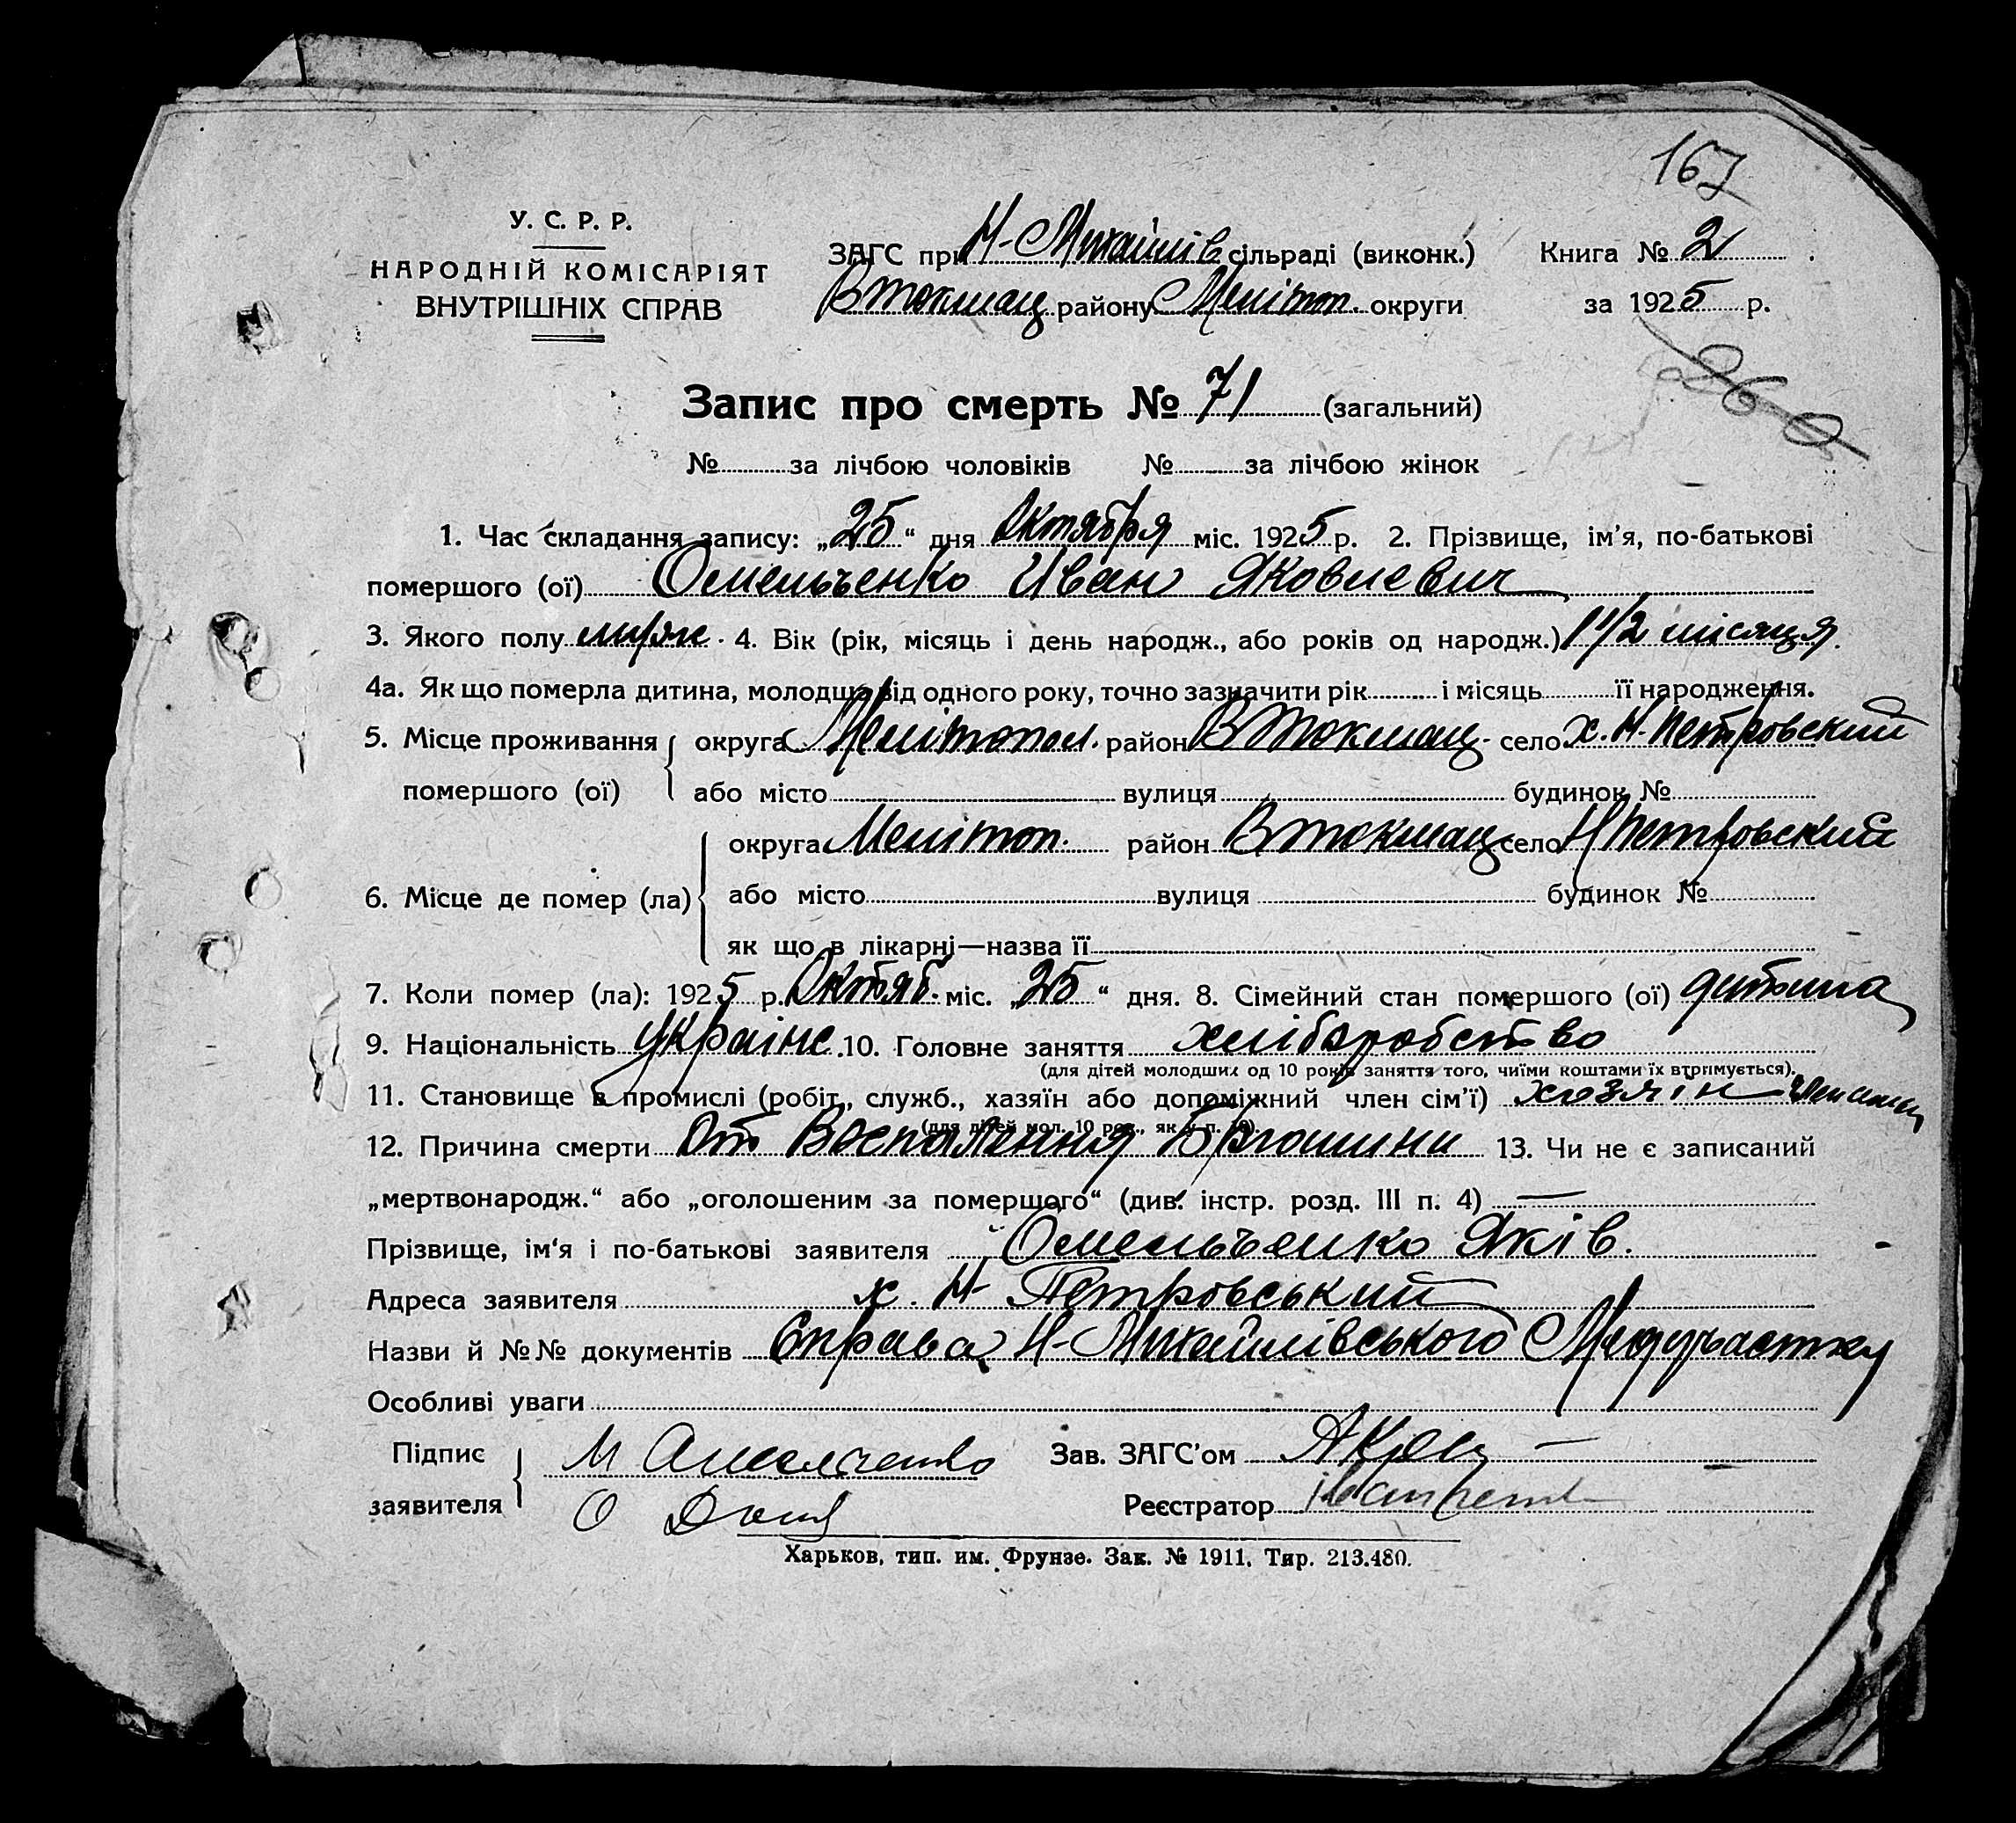 167
У. С. Р. Р.
НАРОДНІЙ КОМІСАРІЯТ
ВНУТРІШНІХ СПРАВ
ЗАГС при Н-Михайлів сільраді (виконк.) Книга № 2
ВТокмац району Меліт. округи за 1925 р.
Запис про смерть № 71 (загальний)
№ за лічбою чоловіків № за лічбою жінок
1. Час складання запису: „25“ дня Октября міс. 1925 р. 2. Прізвище, ім'я, по-батькові
помершого (ої) Омельченко Иван Яковлевич
3. Якого полу муж. 4. Вік (рік, місяць і день народж., або років од народж.) 1 1/2 місяця.
4а. Як що померла дитина, молодша від одного року, точно зазначити рік і місяць її народження.
5. Місце проживання округа Мелітопол. район ВТокмац. село х. Н. Петровский
помершого (ої) або місто вулиця будинок №
округа Мелітоп. район ВТокмац село НПетровский
6. Місце де помер (ла) або місто вулиця будинок №
як що в лікарні—назва її
7. Коли помер (ла): 1925 р. Октяб. міс. „25“ дня. 8. Сімейний стан помершого (ої) дитина
9. Національність Украінс. 10. Головне заняття хлібаробство
(для дітей молодших од 10 років заняття того, чиїми коштами їх втримується).
11. Становище в промислі (робіт., служб., хазяїн або допоміжний член сім'ї) хозяін
(для дітей мол. 10 рок., як у п. 10).
12. Причина смерти От Воспаления 13. Чи не є записаний
„мертвонародж.“ або „оголошеним за померщого“ (див. інстр. розд. III п. 4) —
Прізвище, ім'я і по-батькові заявителя Омельченко Яків.
Адреса заявителя х. Н- Петровський
Назви й №№ документів Справа Н-Михайлівського Медучастку
Особливі уваги
Підпис М Омелченко Зав. ЗАГС'ом
заявителя Реєстратор
Харьков, тип. им. Фрунзе. Зак. № 1911, Тир. 213.480.